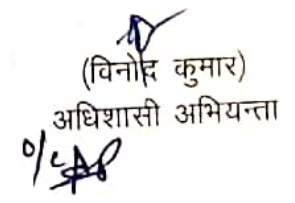 (विनोद कुमार)
अधिशासी अभियन्ता
o/c